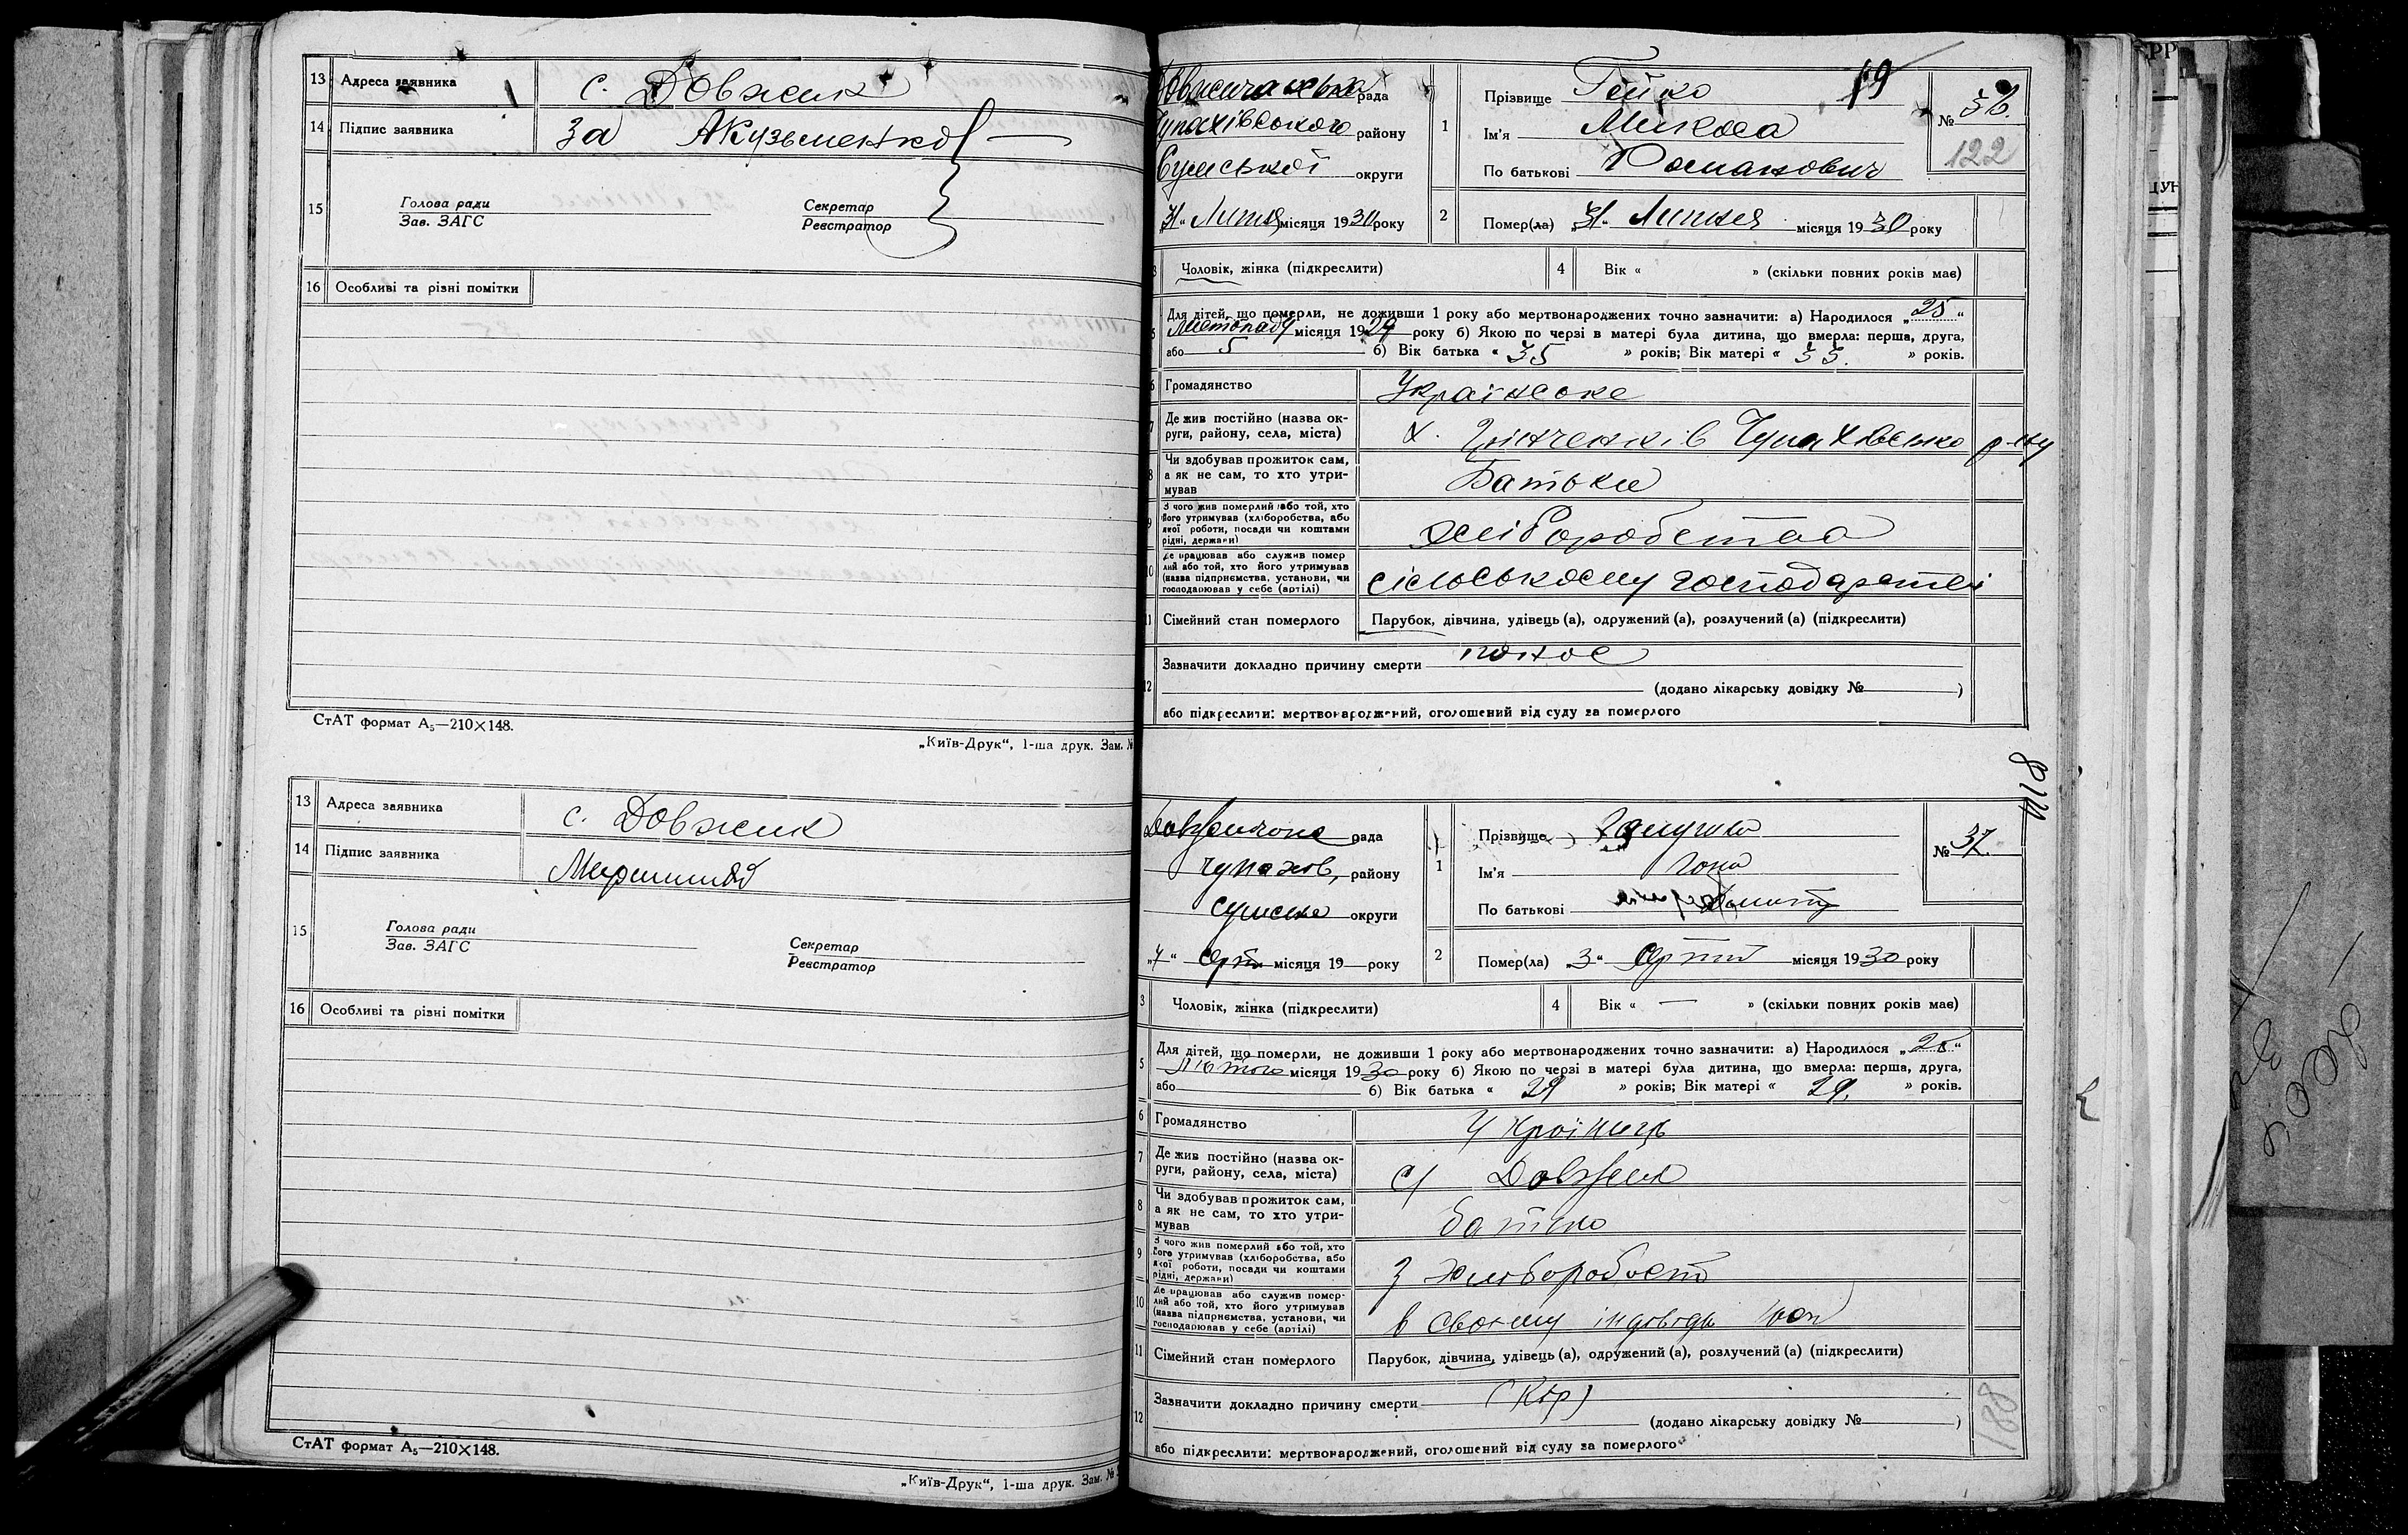 13 Адреса заявника с. Довжик
14 Підпис заявника За АКузьменко
15 Голова ради
Зав. ЗАГС
Секретар
Реєстратор
16 Особливі та різні помітки
СтАТ формат А₅—210×148.
„Київ-Друк“, 1-ша друк. Зам. №
13 Адреса заявника с. Довжик
14 Підпис заявника
15 Голова ради
Зав. ЗАГС
Секретар
Реєстратор
16 Особливі та різні помітки
СтАТ формат А₅—210×148.
„Київ-Друк“, 1-ша друк. Зам. №
рада
Чупахівського району
Сумської округи
„31“ Липня місяця 1930 року
1 Прізвище Гейко
Ім'я Микола
По батькові Романович
19
№ 36.
122
2 Помер(ла) „31“ Липня місяця 1930 року
Чоловік, жінка (підкреслити)
4 Вік « » (скільки повних років має)
Для дітей, що померли, не доживши 1 року або мертвонароджених точно зазначити: а) Народилося „25“
Листопаду місяця 1929 року б) Якою по черзі в матері була дитина, що вмерла: перша, друга,
або 5 б) Вік батька « 35 » років; Вік матері « 33. » років.
6 Громадянство Українське
7 Де жив постійно (назва ок-
руги, району, села, міста)
х. Грінченків Чупахівсько р-ну
8 Чи здобував прожиток сам,
а як не сам, то хто утри-
мував
Батьки
9 З чого жив померлий або той, хто
його утримував (хліборобства, або
якої роботи, посади чи коштами
рідні, держави)
хліборобства
10 Де працював або служив помер
лий або той, хто його утримував
(назва підприємства, установи, чи
господарював у себе (артілі)
сільському господарстві
11 Сімейний стан померлого Парубок, дівчина, удівець (а), одружений (а), розлучений (а) (підкреслити)
12 Зазначити докладно причину смерти понос
(додано лікарську довідку № )
або підкреслити: мертвонароджений, оголошений від суду за померлого
118
рада
Чупахов, району
Сумське округи
„4“ місяця 19 року
1 Прізвище
Ім'я
По батькові
№ 37.
2 Помер(ла) „3“ місяця 1930 року
3 Чоловік, жінка (підкреслити)
4 Вік « — » (скільки повних років має)
5 Для дітей, що померли, не доживши 1 року або мертвонароджених точно зазначити: а) Народилося
Лютого місяця 1930 року б) Якою по черзі в матері була дитина, що вмерла: перша, друга,
або б) Вік батька « 29 » років; Вік матері « 29. » років.
6 Громадянство
7 Де жив постійно (назва ок-
руги, району, села, міста)
с/ Довжик
8 Чи здобував прожиток сам,
а як не сам, то хто утри-
мував
батько
9 З чого жив померлий або той, хто
його утримував (хліборобства, або
якої роботи, посади чи коштами
рідні, держави)
з хліборобст
10 Де працював або служив помер-
лий або той, хто його утримував
(назва підприємства, установи, чи
господарював у себе (артілі)
в своєму
11 Сімейний стан померлого Парубок, дівчина, удівець (а), одружений (а), розлучений (а) (підкреслити)
12 Зазначити докладно причину смерти (Кір)
(додано лікарську довідку № )
або підкреслити: мертвонароджений, оголошений від суду за померлого
188